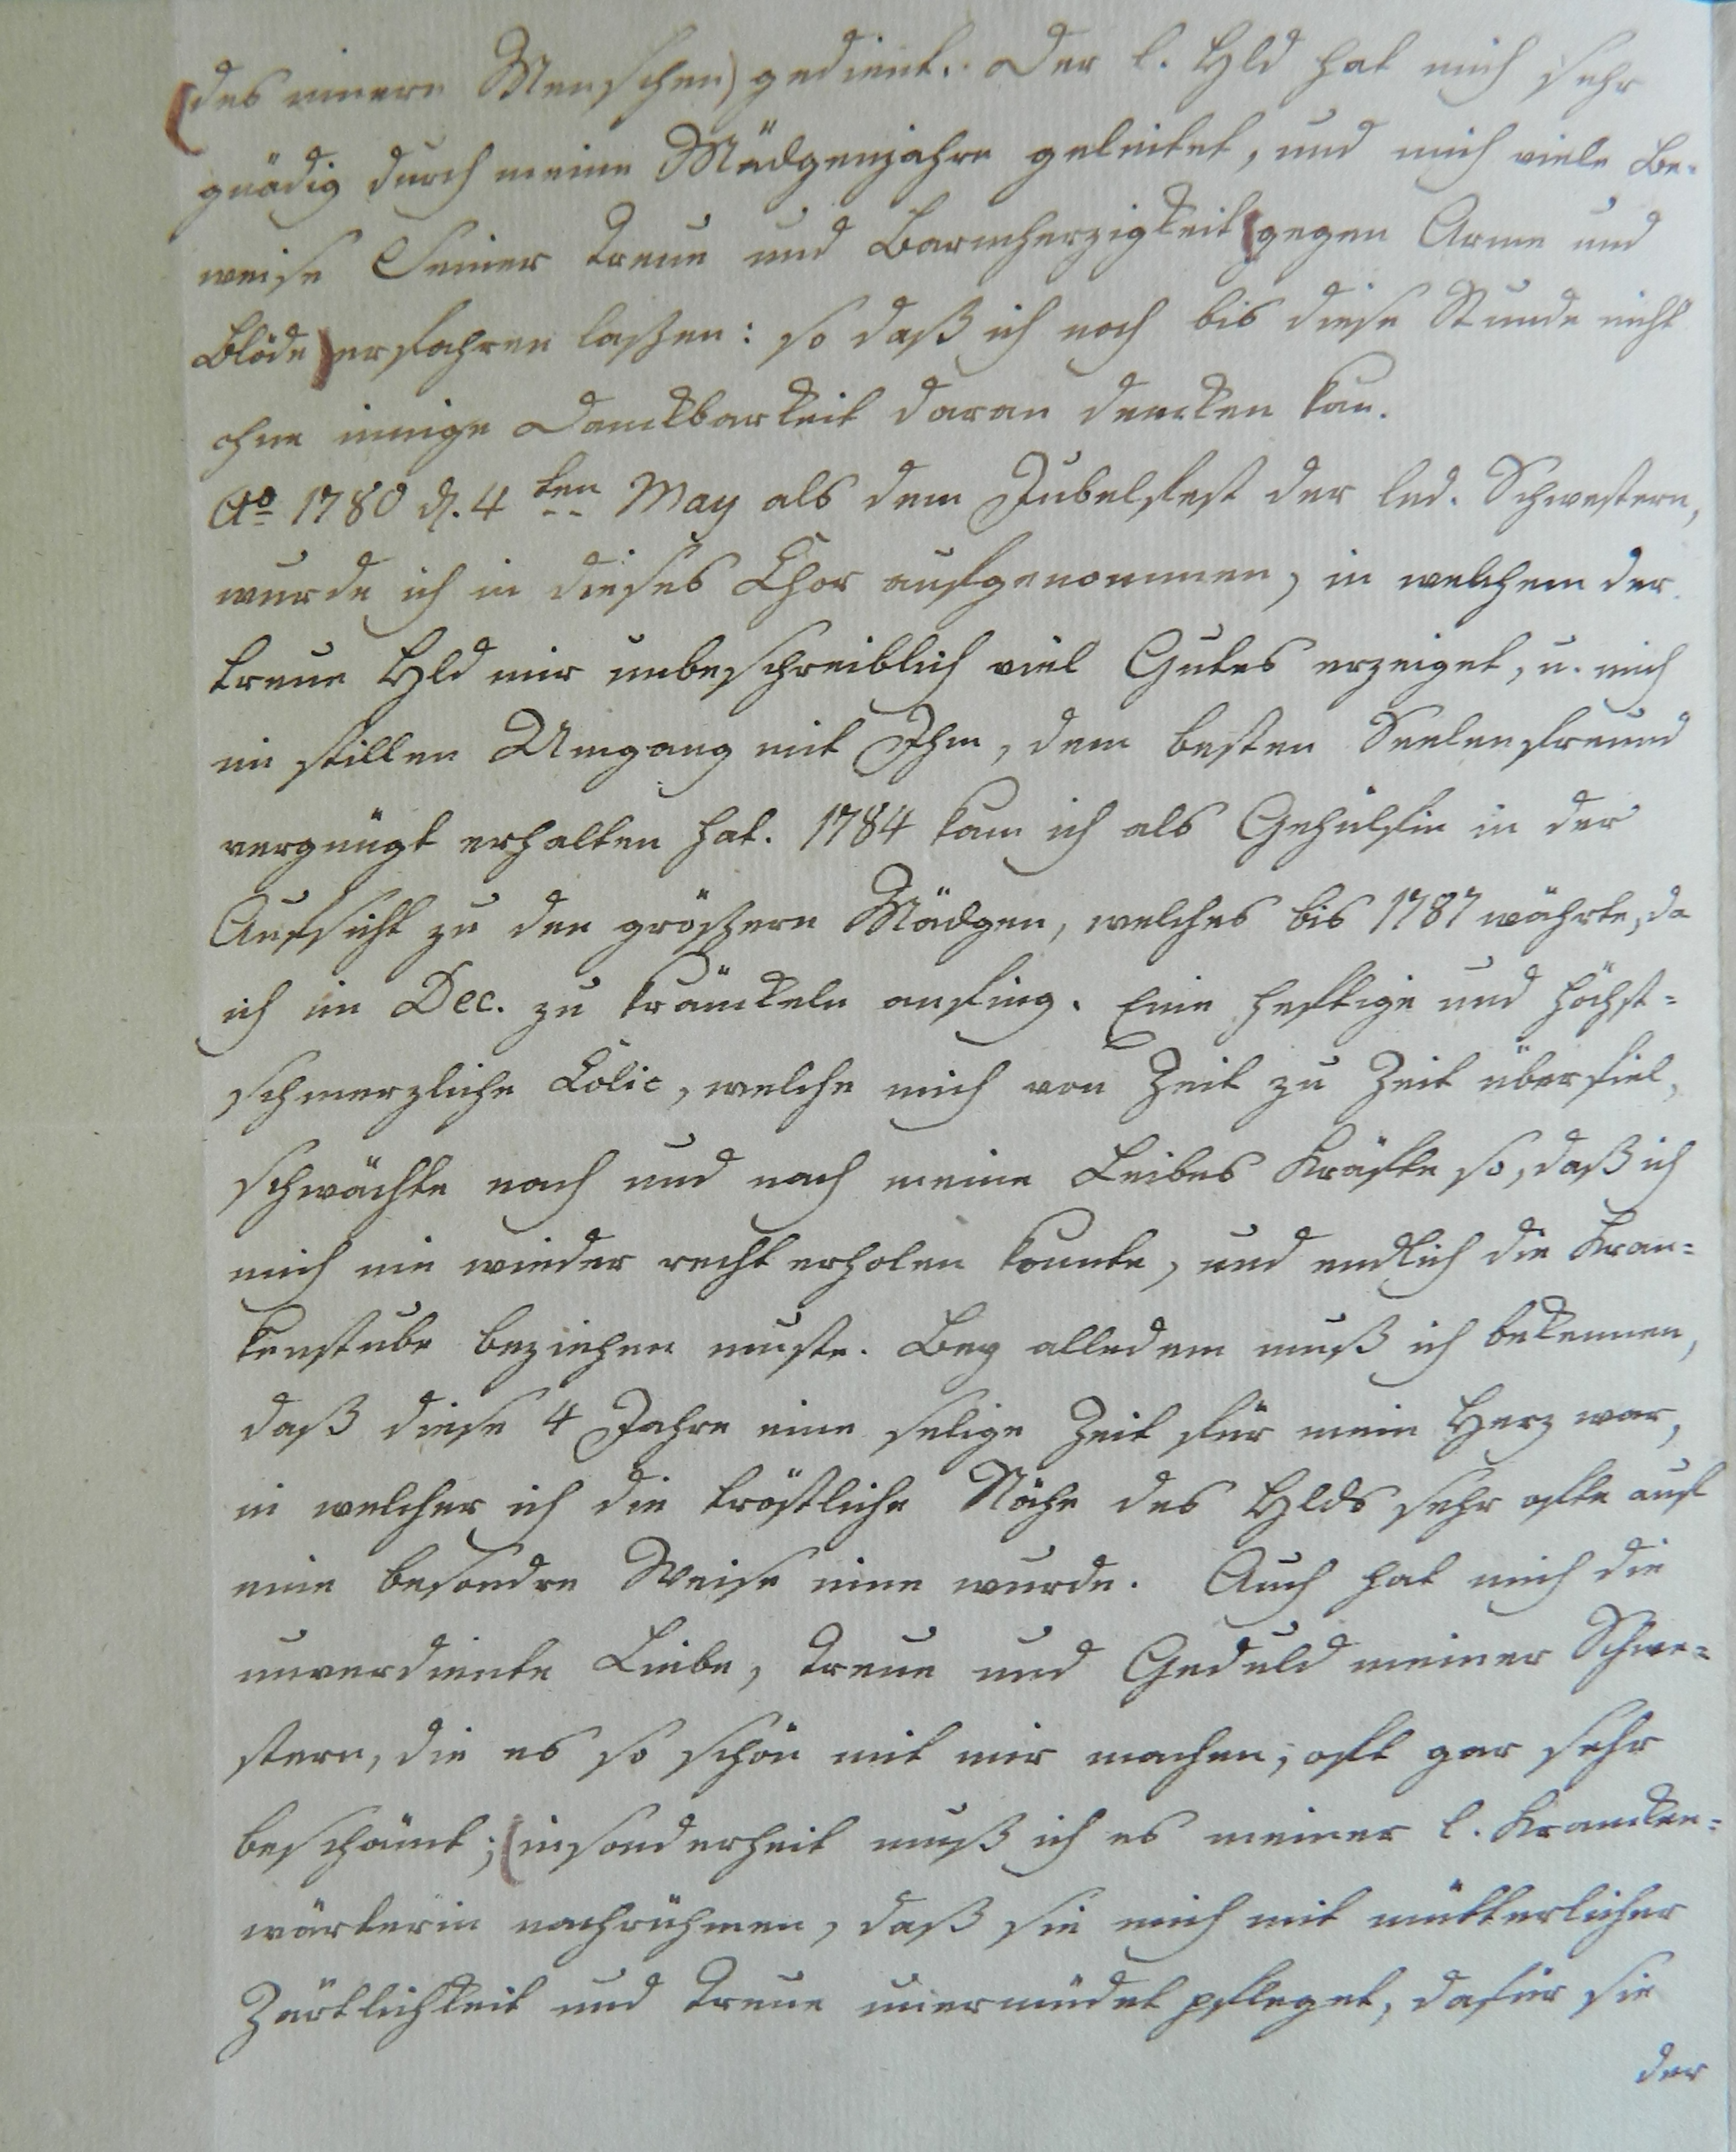 (des innern Menschen) gedient. Der l. Hld hat mich sehr
gnädig durch meine Mädgenjahre geleitet, und mich viele Be-
weise Seiner Treue und Barmherzigkeit (gegen Arme und
Blöde) erfahren laßen: so daß ich noch bis diese Stunde nicht
ohne innige Danckbarkeit daran dencken kan.
Ao 1780 d. 4ten May als dem Jubelfest der led. Schwestern,
wurde ich in dieses Chor aufgenommen, in welchem der
treue Hld mir unbeschreiblich viel Gutes erzeiget, u. mich
im stillen Umgang mit Ihm, dem besten Seelenfreund
vergnügt erhalten hat. 1784 kam ich als Gehülfin in der
Aufsicht zu den größern Mädgen, welches bis 1787 währte, da
ich im Dec. zu kränckeln anfing. Eine heftige und höchst-
schmerzliche Colic, welche mich von Zeit zu Zeit überfiel,
schwächte nach und nach meine Leibes Kräfte so, daß ich
mich nie wieder recht erholen konnte, und endlich die Kran-
kenstube beziehen muste. Bey alledem muß ich bekennen,
daß diese 4 Jahre eine selige Zeit für mein Herz war,
in welcher ich die tröstliche Nähe des Hlds sehr ofte auf
eine besondre Weise inne wurde. Auch hat mich die
unverdiente Liebe, Treue und Geduld meiner Schwe-
stern, die es so schön mit mir machen, oft gar sehr
beschämt; (insonderheit muß ich es meiner l. Krancken-
wärterin nachrühmen, daß sie mich mit mütterlicher
Zärtlichkeit und Treue unermüdet pfleget, dafür sie
der